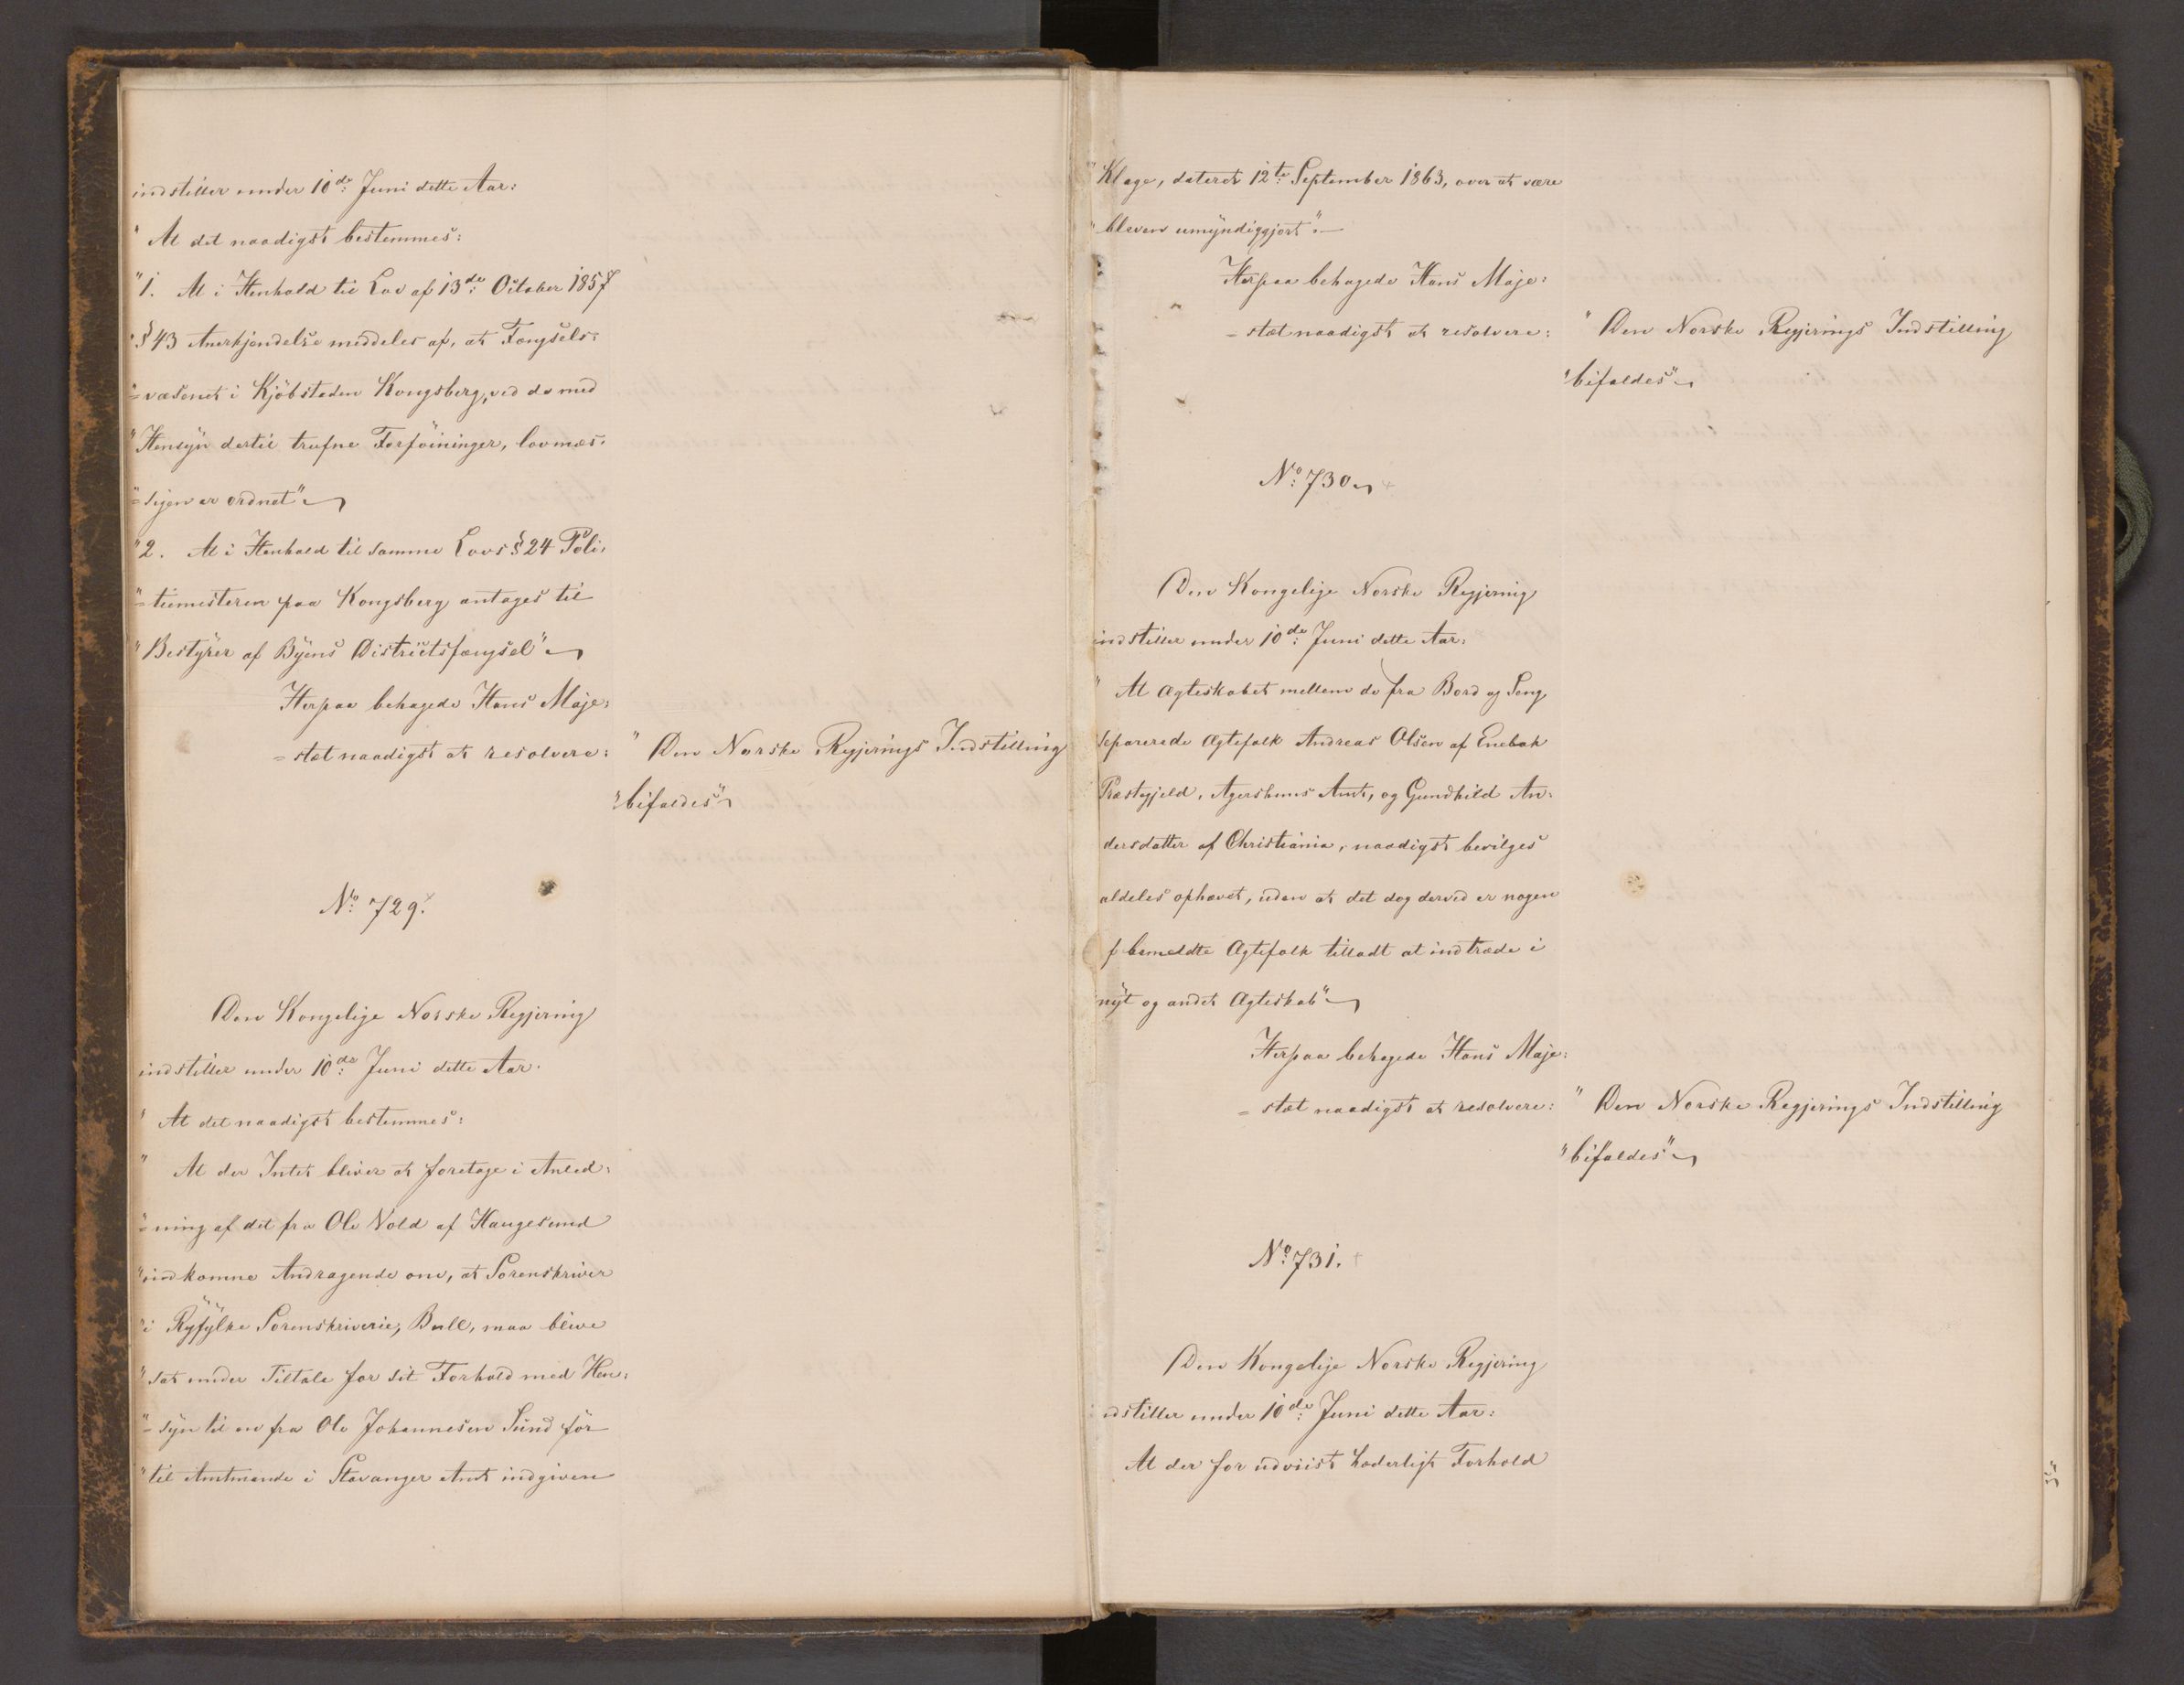 indstiller under 10de: Juni dette Aar:
" At det naadigst bestemmes:
"1. At i Henhold til Lov af 13de: October 1857
"§ 43 Anerkjendelse meddeles af, at Fængsels=
"=væsenet i Kjöbstaden Kongsberg, ved de med
"Hensyn dertil trufne Forföininger, lovmæs=
"=sigen er ordnet"
"2. At i Henhold til samme Lovs § 24 Poli=
"=tiemesteren paa Kongsberg antages til
"Bestyrer af Byens Districtsfængsel"
Herpaa behagede Hans Maje=
=stæt naadigst at resolvere:
" Den Norske Regjerings Indstilling
"bifaldes"
No: 729.
Den Kongelige Norske Regjering
indstiller under 10de: Juni dette Aar.
" At det naadigst bestemmes:
" At der Intet bliver at foretage i Anled=
"=ning af det fra Ole Vold af Haugesund
"indkomne Andragende om, at Sorenskriver
"i Ryfylke Sorenskriverie, Bull, maa blive
"sat under Tiltale for sit Forhold med Hen=
"=syn til en fra Ole Johannesen Sund för
"til Amtmande i Stavanger Amt indgiven
"Klage, dateret 12te: September 1863, over at være
"bleven umyndiggjort".
Herpaa behagede Hans Maje=
=stæt naadigst at resolvere:
" Den Norske Regjerings Indstilling
"bifaldes"
No: 730
Den Kongelige Norske Regjering
indstiller under 10de: Juni dette Aar:
" At Ægteskabet mellem de fra Bord og Seng
separerede Ægtefolk Andreas Olsen af Enebak
Præstegjeld, Agershuus Amt, og Gundhild An=
dersdatter af Christiania, naadigst bevilges
aldeles ophævet, uden at det dog derved er nogen
f bemeldte Ægtefolk tilladt at indtræde i
nyt og andet Ægteskab"
Herpaa behagede Hans Maje=
=stæt naadigst at resolvere:
" Den Norske Regjerings Indstilling
"bifaldes"
No: 731.
Den Kongelige Norske Regjering
indstiller under 10de: Juni dette Aar:
At der for udviist hæderligt Forhold